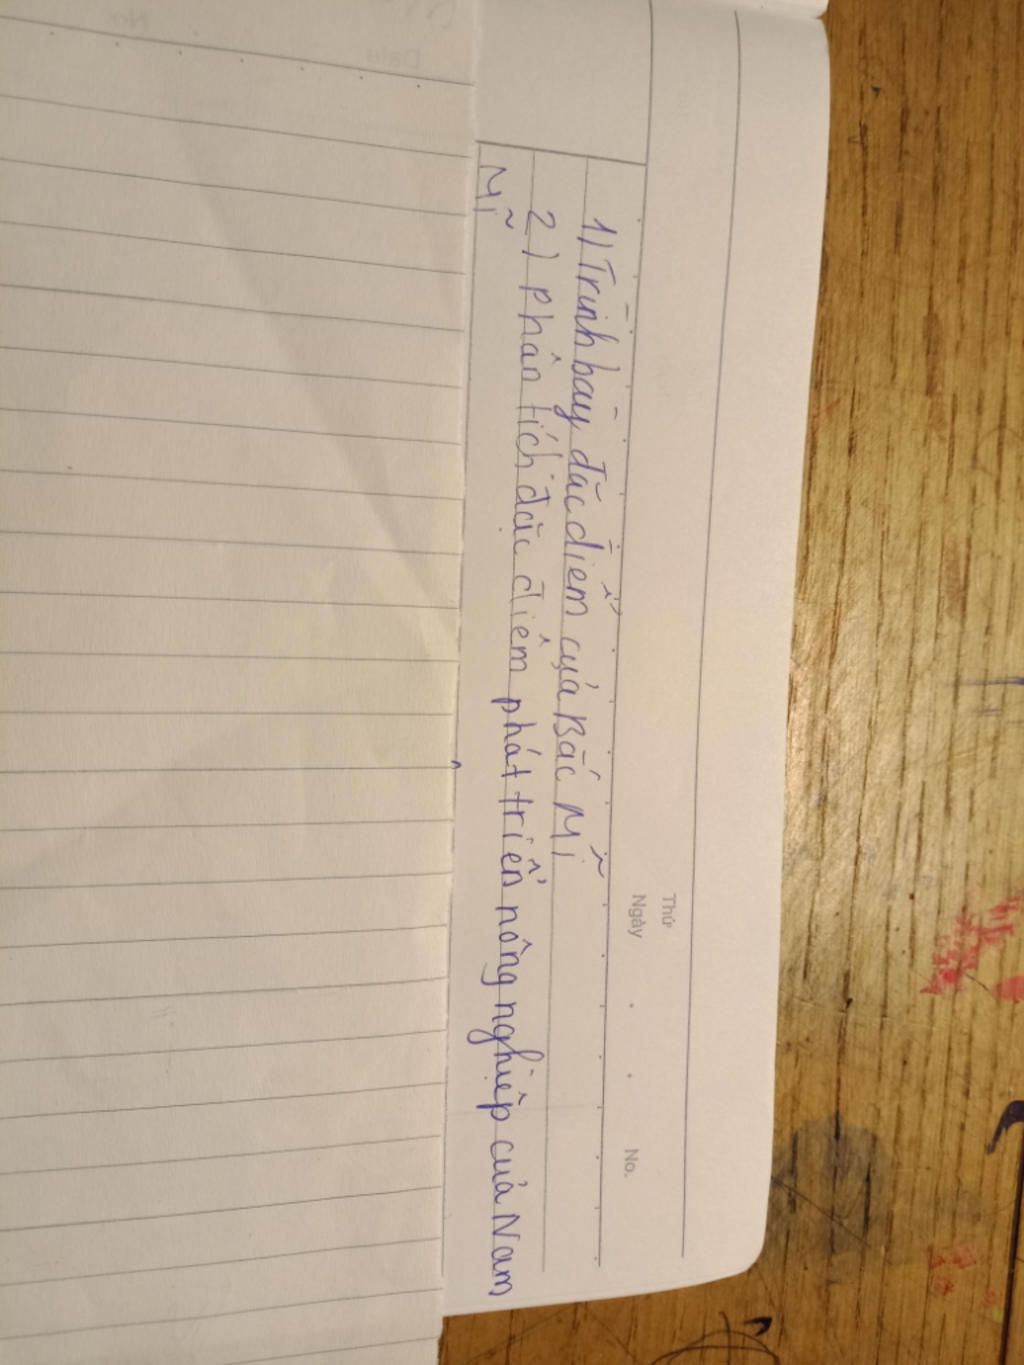 Thứ
Ngày . . No.
1) Trình bày đặc điểm của Bắc Mĩ
2) phân tích đặc điểm phát triển nông nghiệp của Nam
Mĩ
No
Date